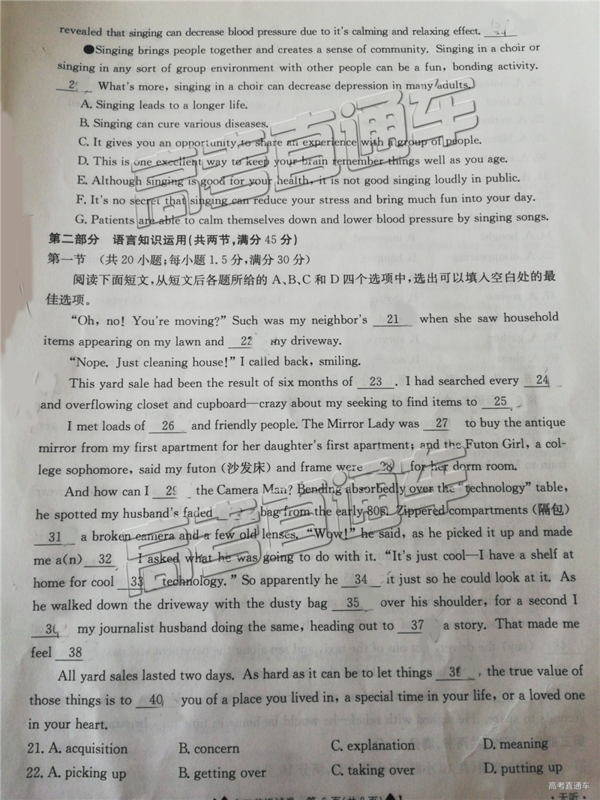 revealed that singing can decrease blood pressure due to it's calming and relaxing effect.
●Singing brings people together and creates a sense of community. Singing in a choir or
singing in any sort of group environment with other people can be a fun, bonding activity.
What's more, singing in a choir can decrease depression in many adults.
A. Singing leads to a longer life.
B. Singing can cure various diseases.
C. It gives you an opportunity to share an experience with a group of people.
D. This is one excellent way to keep your brain remember things well as you age.
E. Although singing is good for your health, it is not good singing loudly in public.
F. It's no secret that singing can reduce your stress and bring much fun into your day.
G. Patients are able to calm themselves down and lower blood pressure by singing songs.
第二部分 语言知识运用(共两节,满分45分)
第一节 (共20小题;每小题1.5分,满分30分)
阅读下面短文,从短文后各题所给的A、B、C和D四个选项中,选出可以填入空白处的最
佳选项。
"Oh, no! You're moving?" Such was my neighbor's 21 when she saw household
items appearing on my lawn and 22 my driveway.
"Nope. Just cleaning house!" I called back, smiling.
This yard sale had been the result of six months of 23 . I had searched every 24
and overflowing closet and cupboard—crazy about my seeking to find items to 25
I met loads of 26 and friendly people. The Mirror Lady was 27 to buy the antique
mirror from my first apartment for her daughter's first apartment; and the Futon Girl, a col-
lege sophomore, said my futon (沙发床) and frame were 28 for her dorm room.
And how can I 29 the Camera Man? Bending absorbedly over the "technology" table,
he spotted my husband's faded bag from the early 80s. Zippered compartments (隔包)
31 a broken camera and a few old lenses. "Wow!" he said, as he picked it up and made
me a(n) 32 . I asked what he was going to do with it. "It's just cool—I have a shelf at
home for cool 33 technology." So apparently he 34 it just so he could look at it. As
he walked down the driveway with the dusty bag 35 over his shoulder, for a second I
36 my journalist husband doing the same, heading out to 37 a story. That made me
feel 38
All yard sales lasted two days. As hard as it can be to let things 39 , the true value of
those things is to 40 you of a place you lived in, a special time in your life, or a loved one
in your heart.
21. A. acquisition B. concern C. explanation D. meaning
22. A. picking up B. getting over C. taking over D. putting up
高考直通车
高考直通车
高考直通车